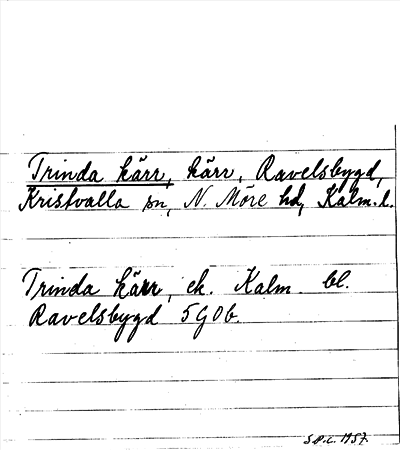 Trinda kärr, kärr, Ravelsbygd,
Kristvalla sn, N. Möre hd, Kalm. l.
Trinda kärr, ek. Kalm. bl.
Ravelsbygd 5G0b.
1957.